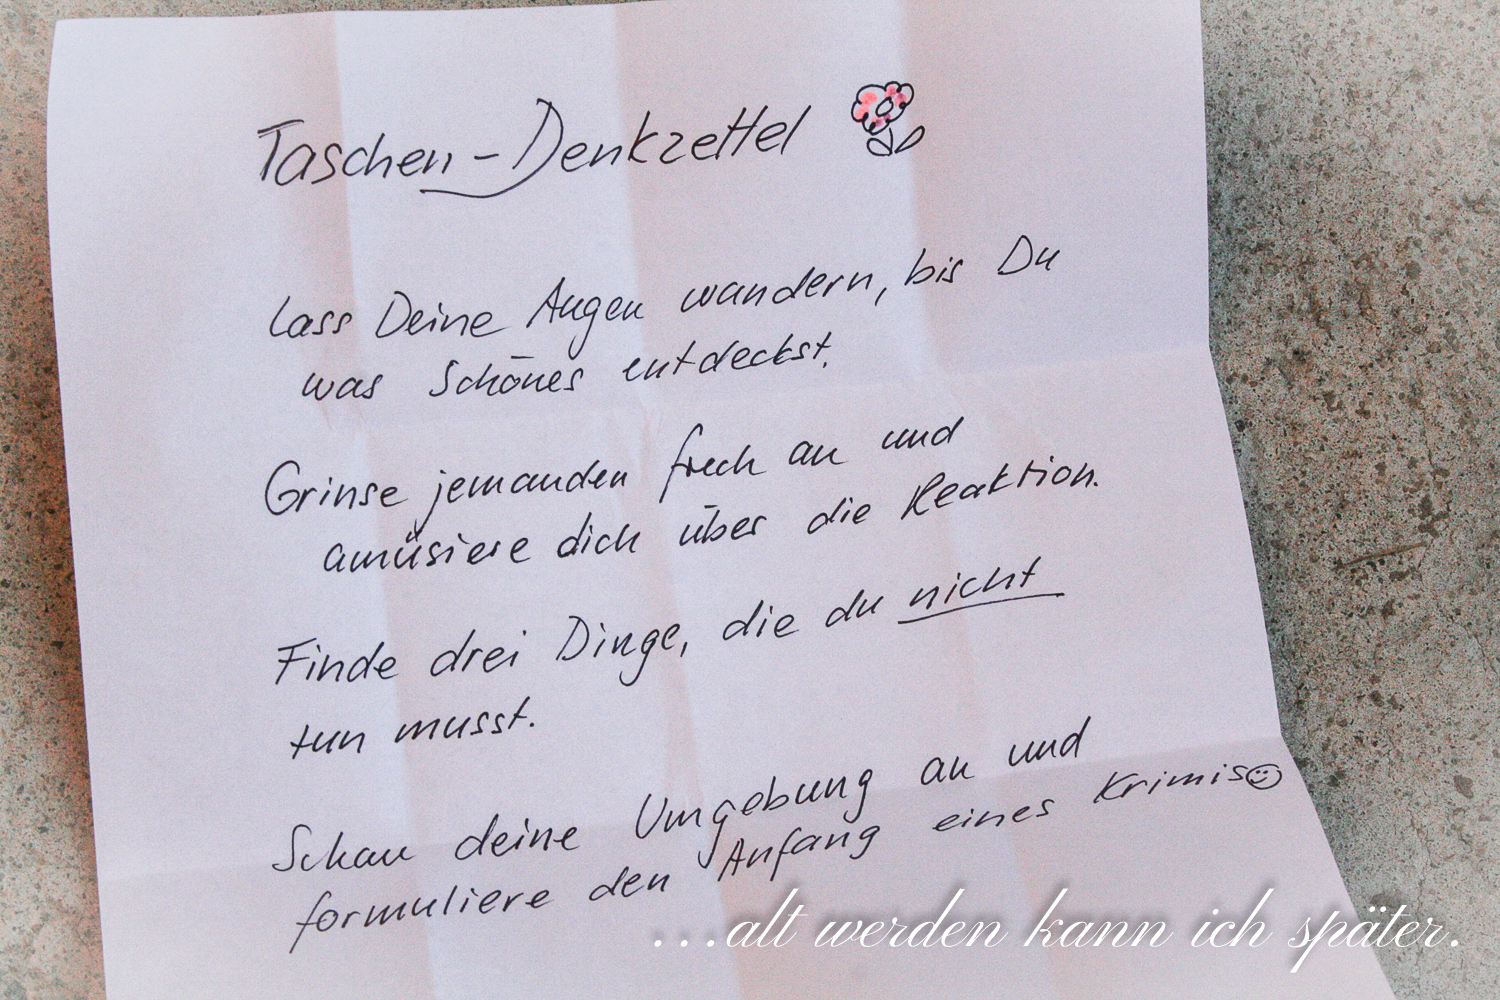 Taschen-Denkzettel
Lass Deine Augen wandern, bis Du
was Schönes entdeckst.
Grinse jemanden frech an und
amüsiere dich über die Reaktion.
Finde drei Dinge, die du nicht
tun musst.
Schau deine Umgebung an und
formuliere den Anfang eines Krimis☺
...alt werden kann ich später.